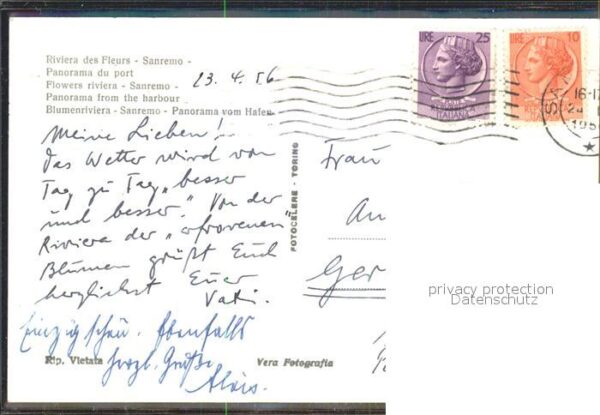 Riviera des Fleurs - Sanremo -
Panorama du port
Flowers riviera - Sanremo -
Panorama from the harbour
Blumenriviera - Sanremo - Panorama vom Hafen
23.4.56
LIRE 25
LIRE 10
ITALIANA
16-17
24
195
Meine Lieben!
das Wetter wird von
Tag zu Tag „besser
und besser". Von der
Riviera der „erfrorenen"
Blumen grüßt Euch
herzlichst Euer
Vati.
Einzig schön. Ebenfalls
herzl. Grüße
Alois.
Rip. Vietata
Vera Fotografia
FOTOCELERE - TORINO
Frau
An
Ger
privacy protection
Datenschutz